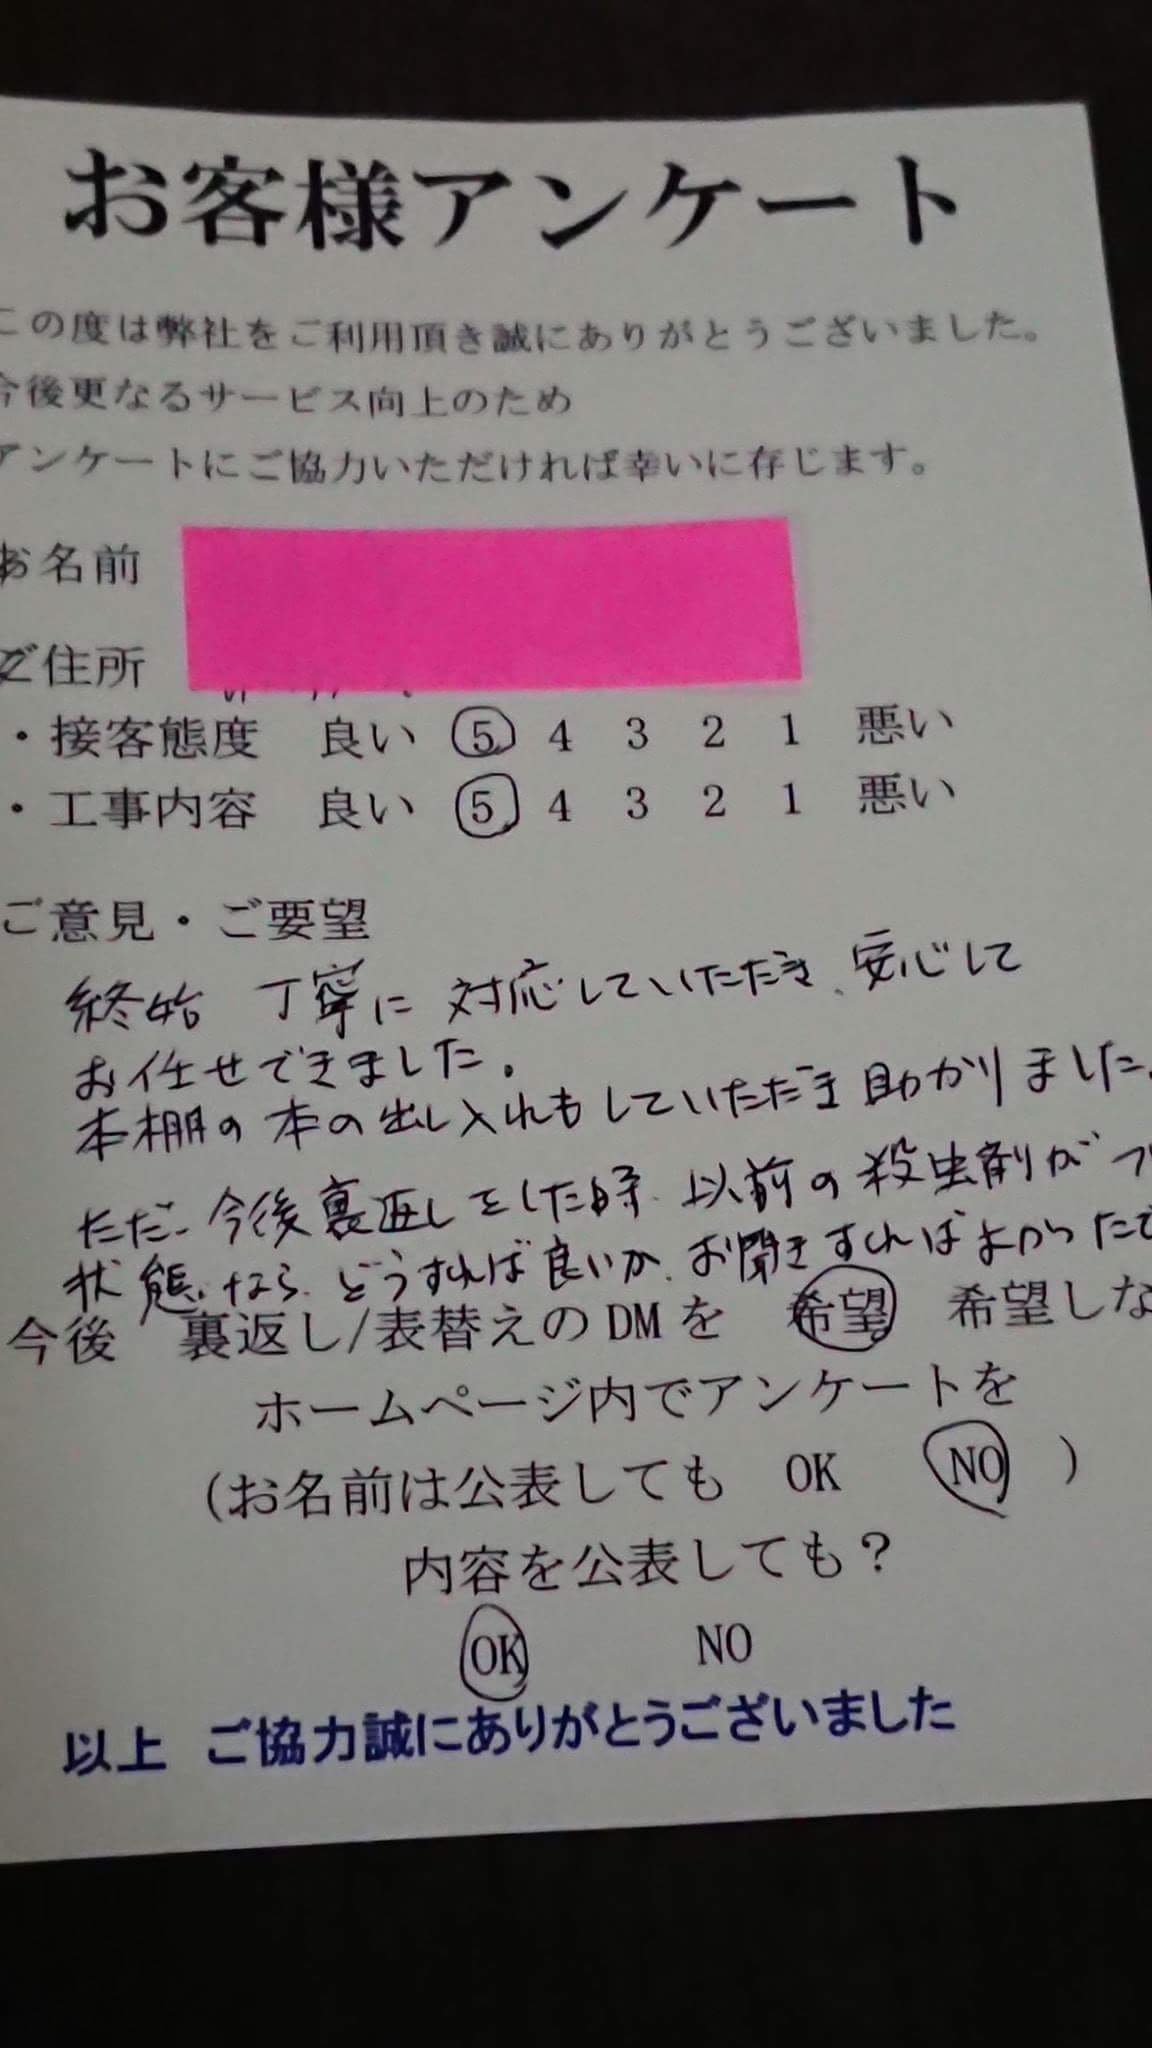 お客様アンケート
この度は弊社をご利用頂き誠にありがとうございました。
今後更なるサービス向上のため
アンケートにご協力いただければ幸いに存じます。
お名前
ご住所
・接客態度 良い 5 4 3 2 1 悪い
・工事内容 良い 5 4 3 2 1 悪い
ご意見・ご要望
終始 丁寧に 対応していただき、安心して
お任せできました。
本棚の本の出し入れもしていただき助かりました。
ただ、今後裏返しをした時、以前の殺虫剤が
状態なら、どうすれば良いか、お聞きすればよかったで
今後 裏返し/表替えのDMを 希望 希望しな
ホームページ内でアンケートを
(お名前は公表しても OK NO )
内容を公表しても?
OK NO
以上 ご協力誠にありがとうございました